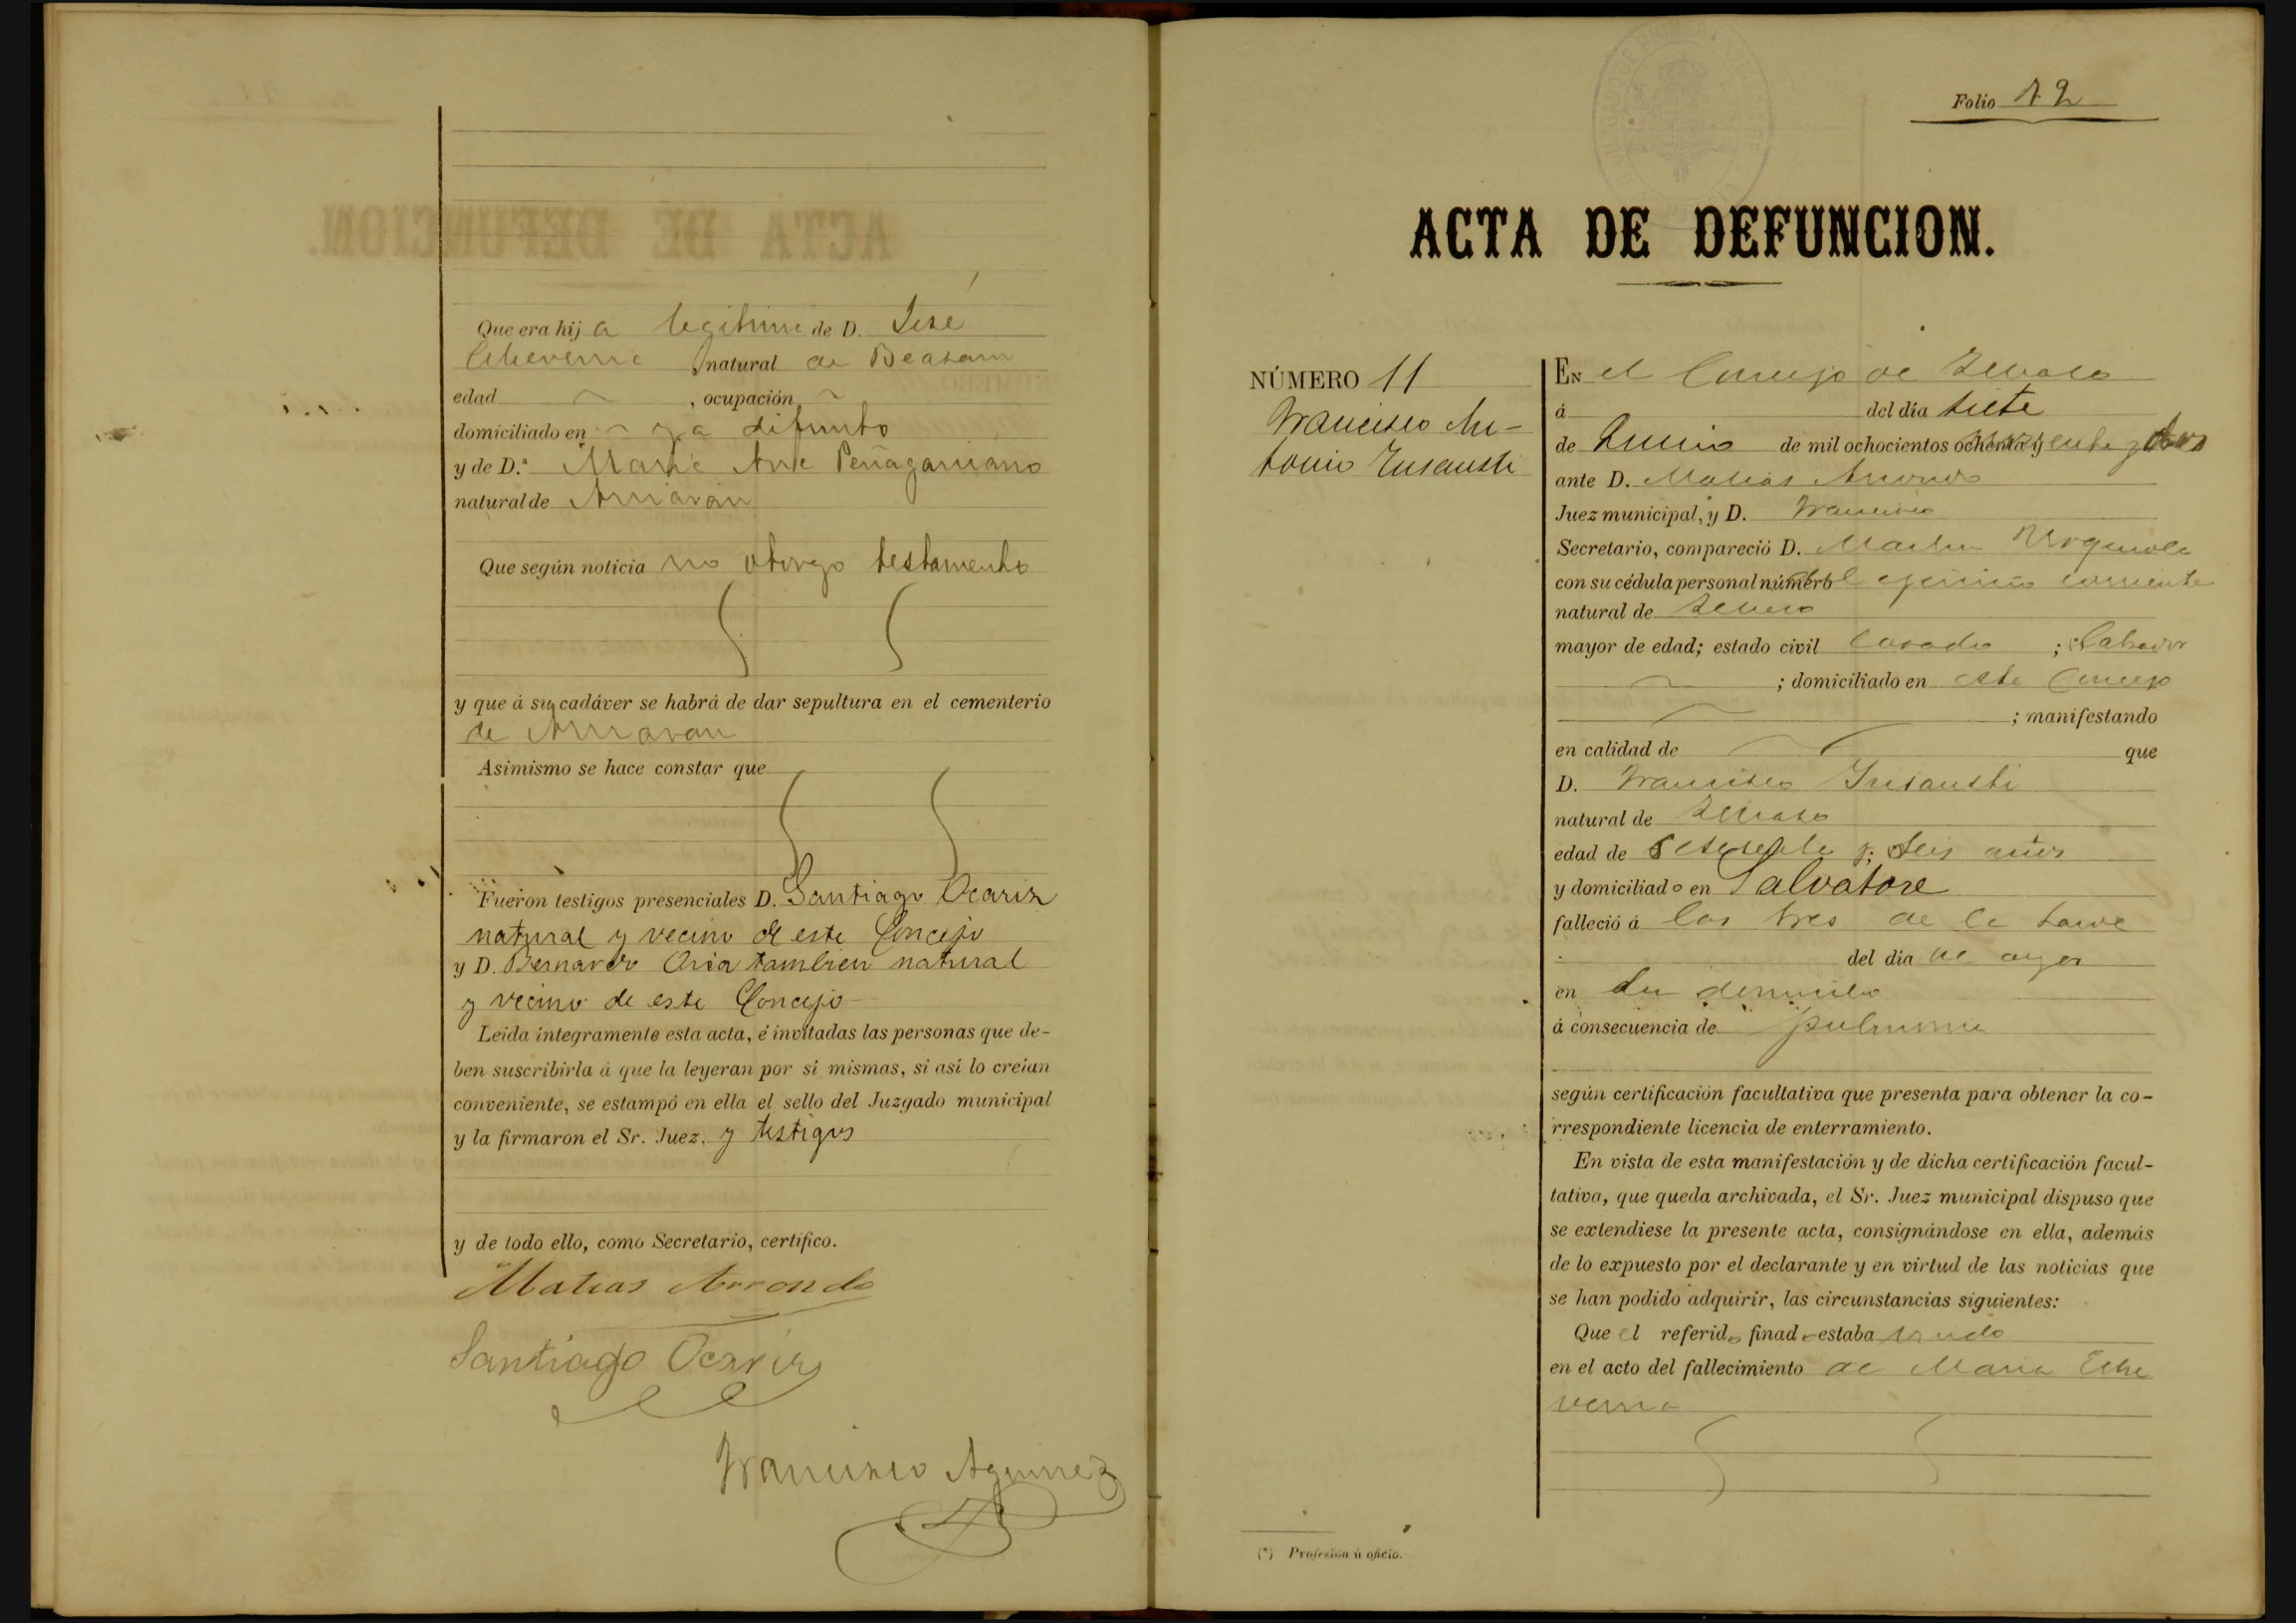 Que era hija legitima de D. José
Echeverria natural de Beasain
edad , ocupación
domiciliado en ya difunto
y de D.ª Maria Ana Peñagaricano
natural de Amavan
Que según noticia no otorgo testamento
y que á su cadáver se habrá de dar sepultura en el cementerio
de
Asimismo se hace constar que
Fueron testigos presenciales D. Santiago Ocariz
natural y vecino de este Concejo
y D. Bernardo tambien natural
y vecino de este Concejo
Leida íntegramente esta acta, é invitadas las personas que de-
ben suscribirla á que la leyeran por sí mismas, si así lo creían
conveniente, se estampó en ella el sello del Juzgado municipal
y la firmaron el Sr. Juez, y testigos
y de todo ello, como Secretario, certifico.
Matias Arrondo
Santiago Ocariz
Francisco Aguirre
Folio 12
ACTA DE DEFUNCION.
NÚMERO 11
Francisco An-
tonio Insausti
EN el Concejo de
á del día siete
de Junio de mil ochocientos ochenta y
ante D. Matias Arrondo
Juez municipal, y D. Francisco
Secretario, compareció D. Martin Urquiola
con su cédula personal número corriente
natural de
mayor de edad; estado civil casado ; labrador
; domiciliado en este Concejo
; manifestando
en calidad de que
D. Francisco Insausti
natural de
edad de sesenta y seis años
y domiciliado en Salvatore
falleció á las tres de la tarde
del día de ayer
en su domicilio
á consecuencia de
según certificación facultativa que presenta para obtener la co-
rrespondiente licencia de enterramiento.
En vista de esta manifestación y de dicha certificación facul-
tativa, que queda archivada, el Sr. Juez municipal dispuso que
se extendiese la presente acta, consignándose en ella, además
de lo expuesto por el declarante y en virtud de las noticias que
se han podido adquirir, las circunstancias siguientes:
Que el referido finado estaba viudo
en el acto del fallecimiento de Maria Eche
verria
(*) Profesión ú oficio.